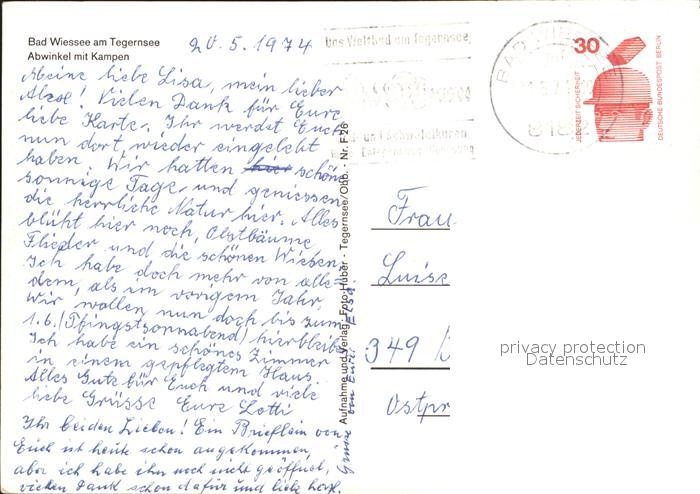 Bad Wiessee am Tegernsee
Abwinkel mit Kampen
20.5.1974
Meine liebe Lisa, mein lieber
Vielen Dank für Eure
liebe Karte. Ihr werdet Euch
nun dort wieder eingelebt
haben. Wir hatten hier schöne
sonnige Tage und geniessen
die herrliche Natur hier. Alles
blüht hier noch, Obstbäume,
Flieder und die schönen Wiesen.
Ich habe doch mehr von alle-
dem, als im vorigem Jahr.
Wir wollen nun doch bis zum
1.6. (Pfingstsonnabend) hierbleiben
Ich habe ein schönes Zimmer
in einem gepflegtem Haus.
Alles Gute für Euch und viele
liebe Grüsse Eure Lotti
Ihr beiden Lieben! Ein Brieflein von
Euch ist heute schon angekommen,
aber ich habe ihn noch nicht geöffnet,
vielen Dank schon dafür und liebe herzl.
Grüsse von Eurer Elsa.
Aufnahme und Verlag: Foto-Huber - Tegernsee/Obb. - Nr. F 26
Das Weltbad am Tegernsee
und Schwefelkuren
BAD WIE
818
30
JEDERZEIT SICHERHEIT
DEUTSCHE BUNDESPOST BERLIN
Frau
Luise
349
Ostpr
privacy protection
Datenschutz